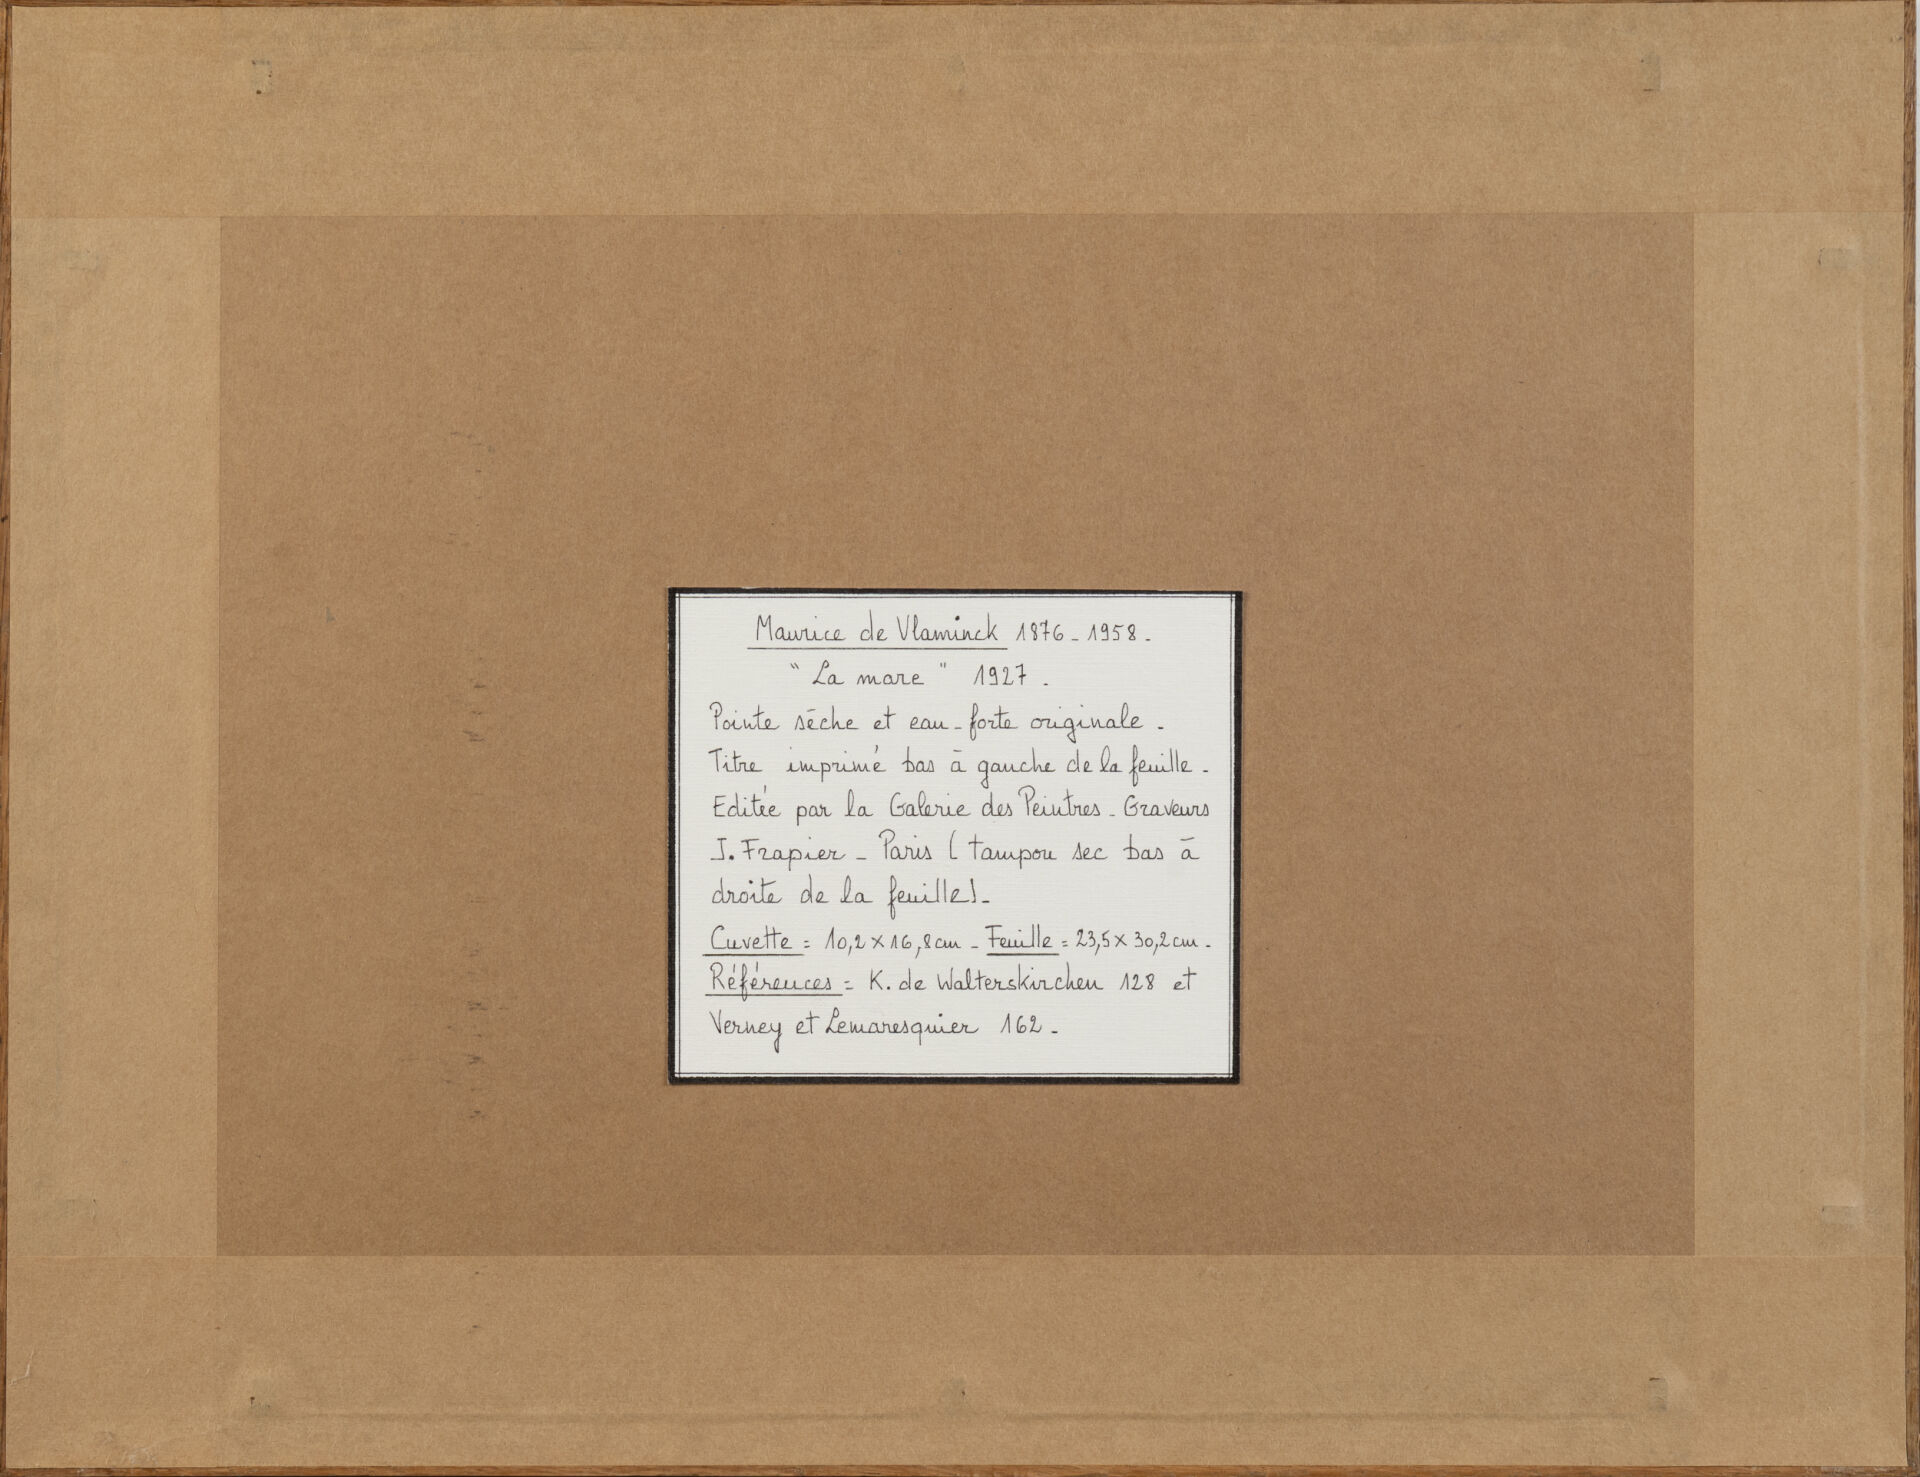 Maurice de Vlaminck 1876-1958.
"La mare" 1927.
Pointe sèche et eau-forte originale.
Titre imprimé bas à gauche de la feuille.
Editée par la Galerie des Peintres-Graveurs
J. Frapier - Paris (tampon sec bas à
droite de la feuille).
Cuvette = 10,2 x 16,8 cm - Feuille = 23,5 x 30,2 cm.
Références = K. de Walterskirchen 128 et
Verney et Lemaresquier 162.